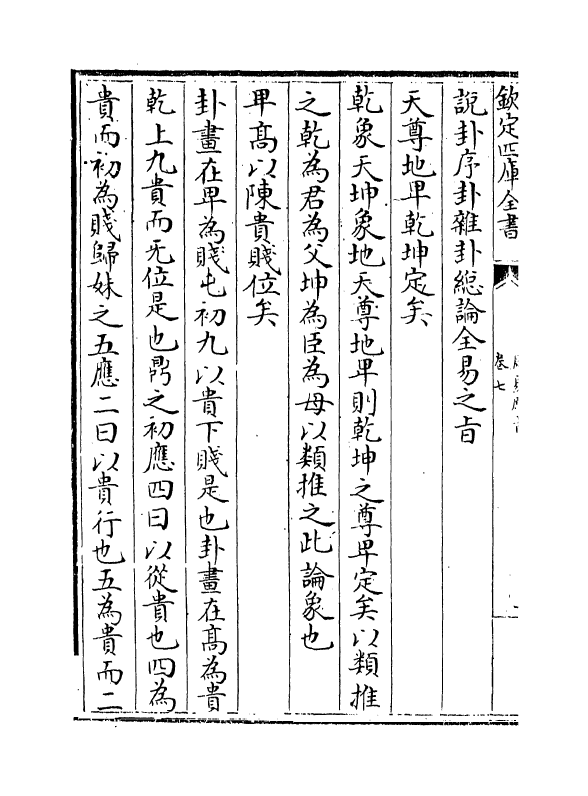 欽定四庫全書
卷七
說卦序卦雜卦總論全易之旨
天尊地卑乾坤定矣
乾象天坤象地天尊地卑則乾坤之尊卑定矣以類推
之乾為君為父坤為臣為母以類推之此論象也
卑髙以陳貴賤位矣
卦畫在卑為賤屯初九以貴下賤是也卦畫在髙為貴
乾上九貴而无位是也鼎之初應四曰以從貴也四為
貴而初為賤歸妹之五應二曰以貴行也五為貴而二